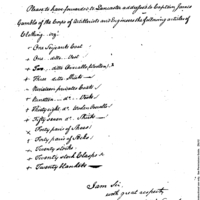 Please to have forwarded to Lancaster addressed to Captain James
Gamble of the Corps of Artillerists and Engineers the following articles of
Clothing. viz:
+ One Serjeants Coat
+ One ditto Vest
+ Two ditto Overalls
+ Three ditto Shirts
+ Nineteen privates Coats
+ Nineteen do. Vests
+ Thirty eight do. Woolen Overalls
+ Fifty seven do. Shirts
x Forty pair of Shoes
+ Forty pair of Socks
+ Twenty stocks
+ Twenty stock Clasps
+ Twenty blankets
I am Sir,
with great respect